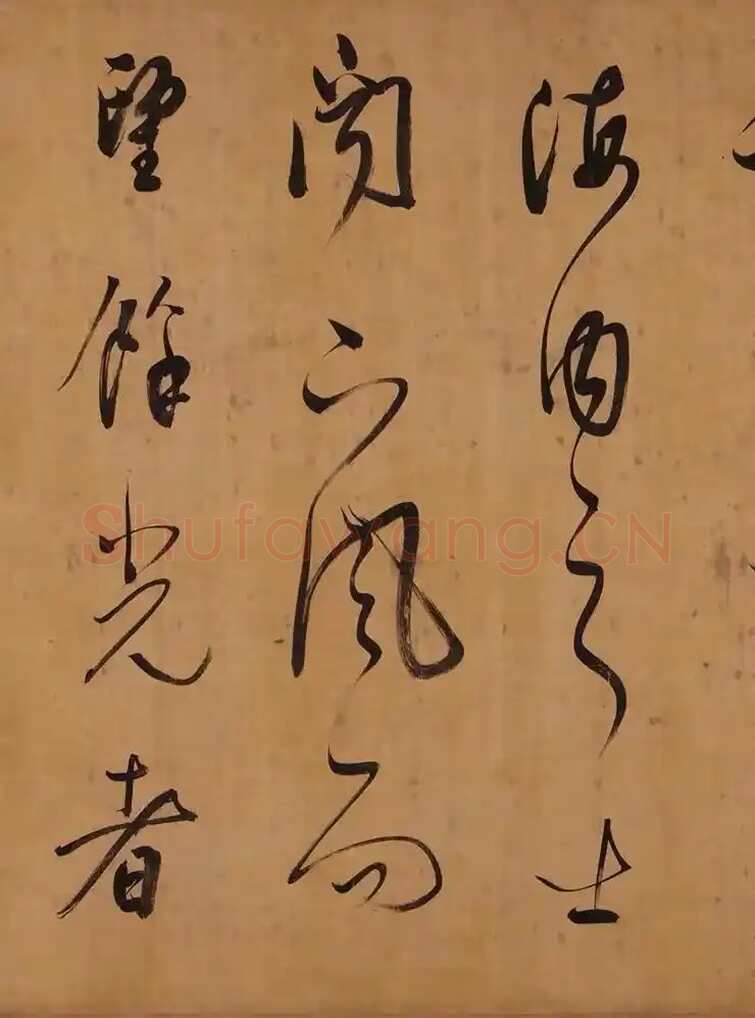 海内之士
聞下風而
望餘光者
Shufawang.CN